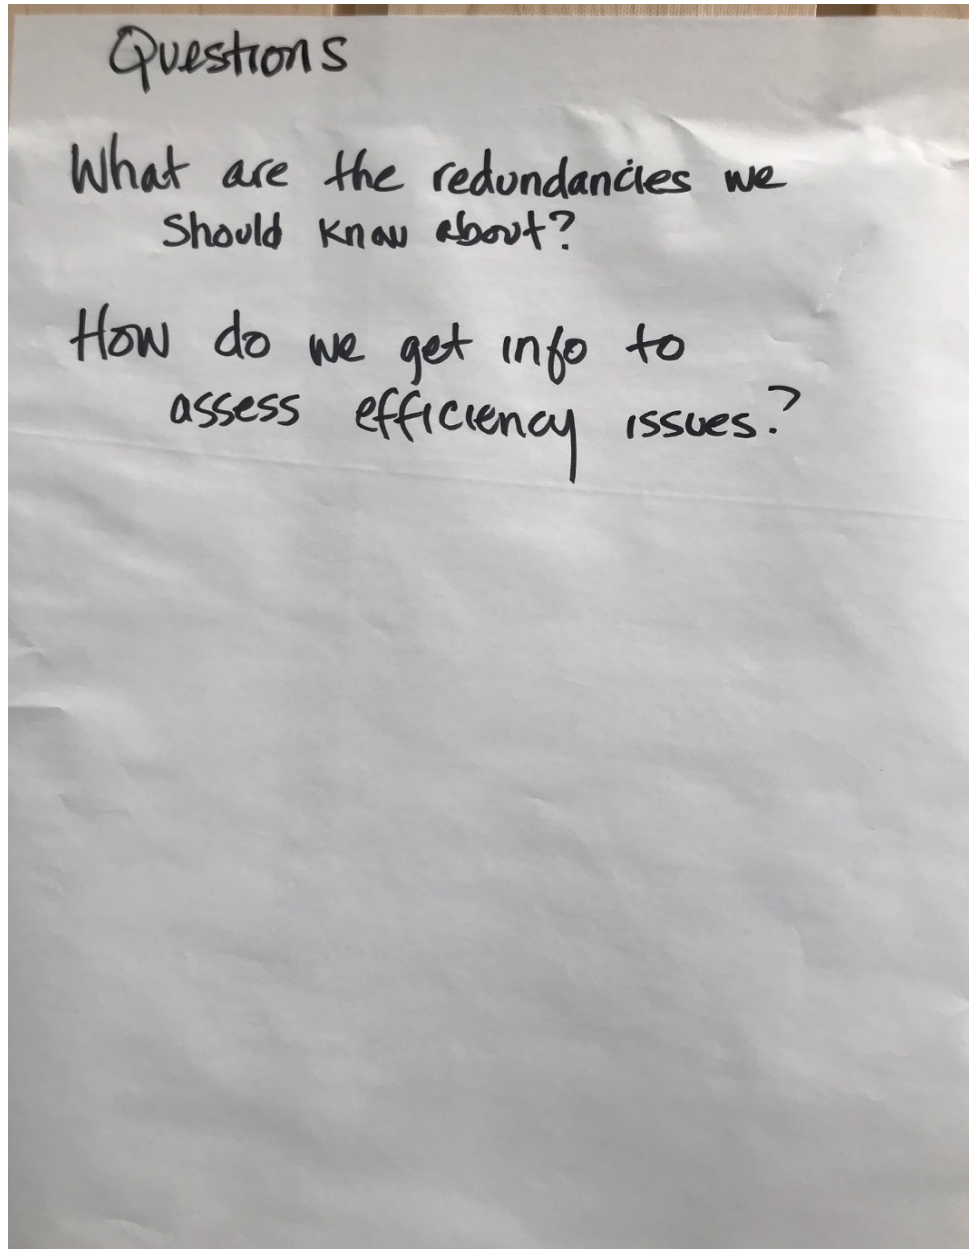 Questions
What are the redundancies we
should know about?
How do we get info to
assess efficiency issues?